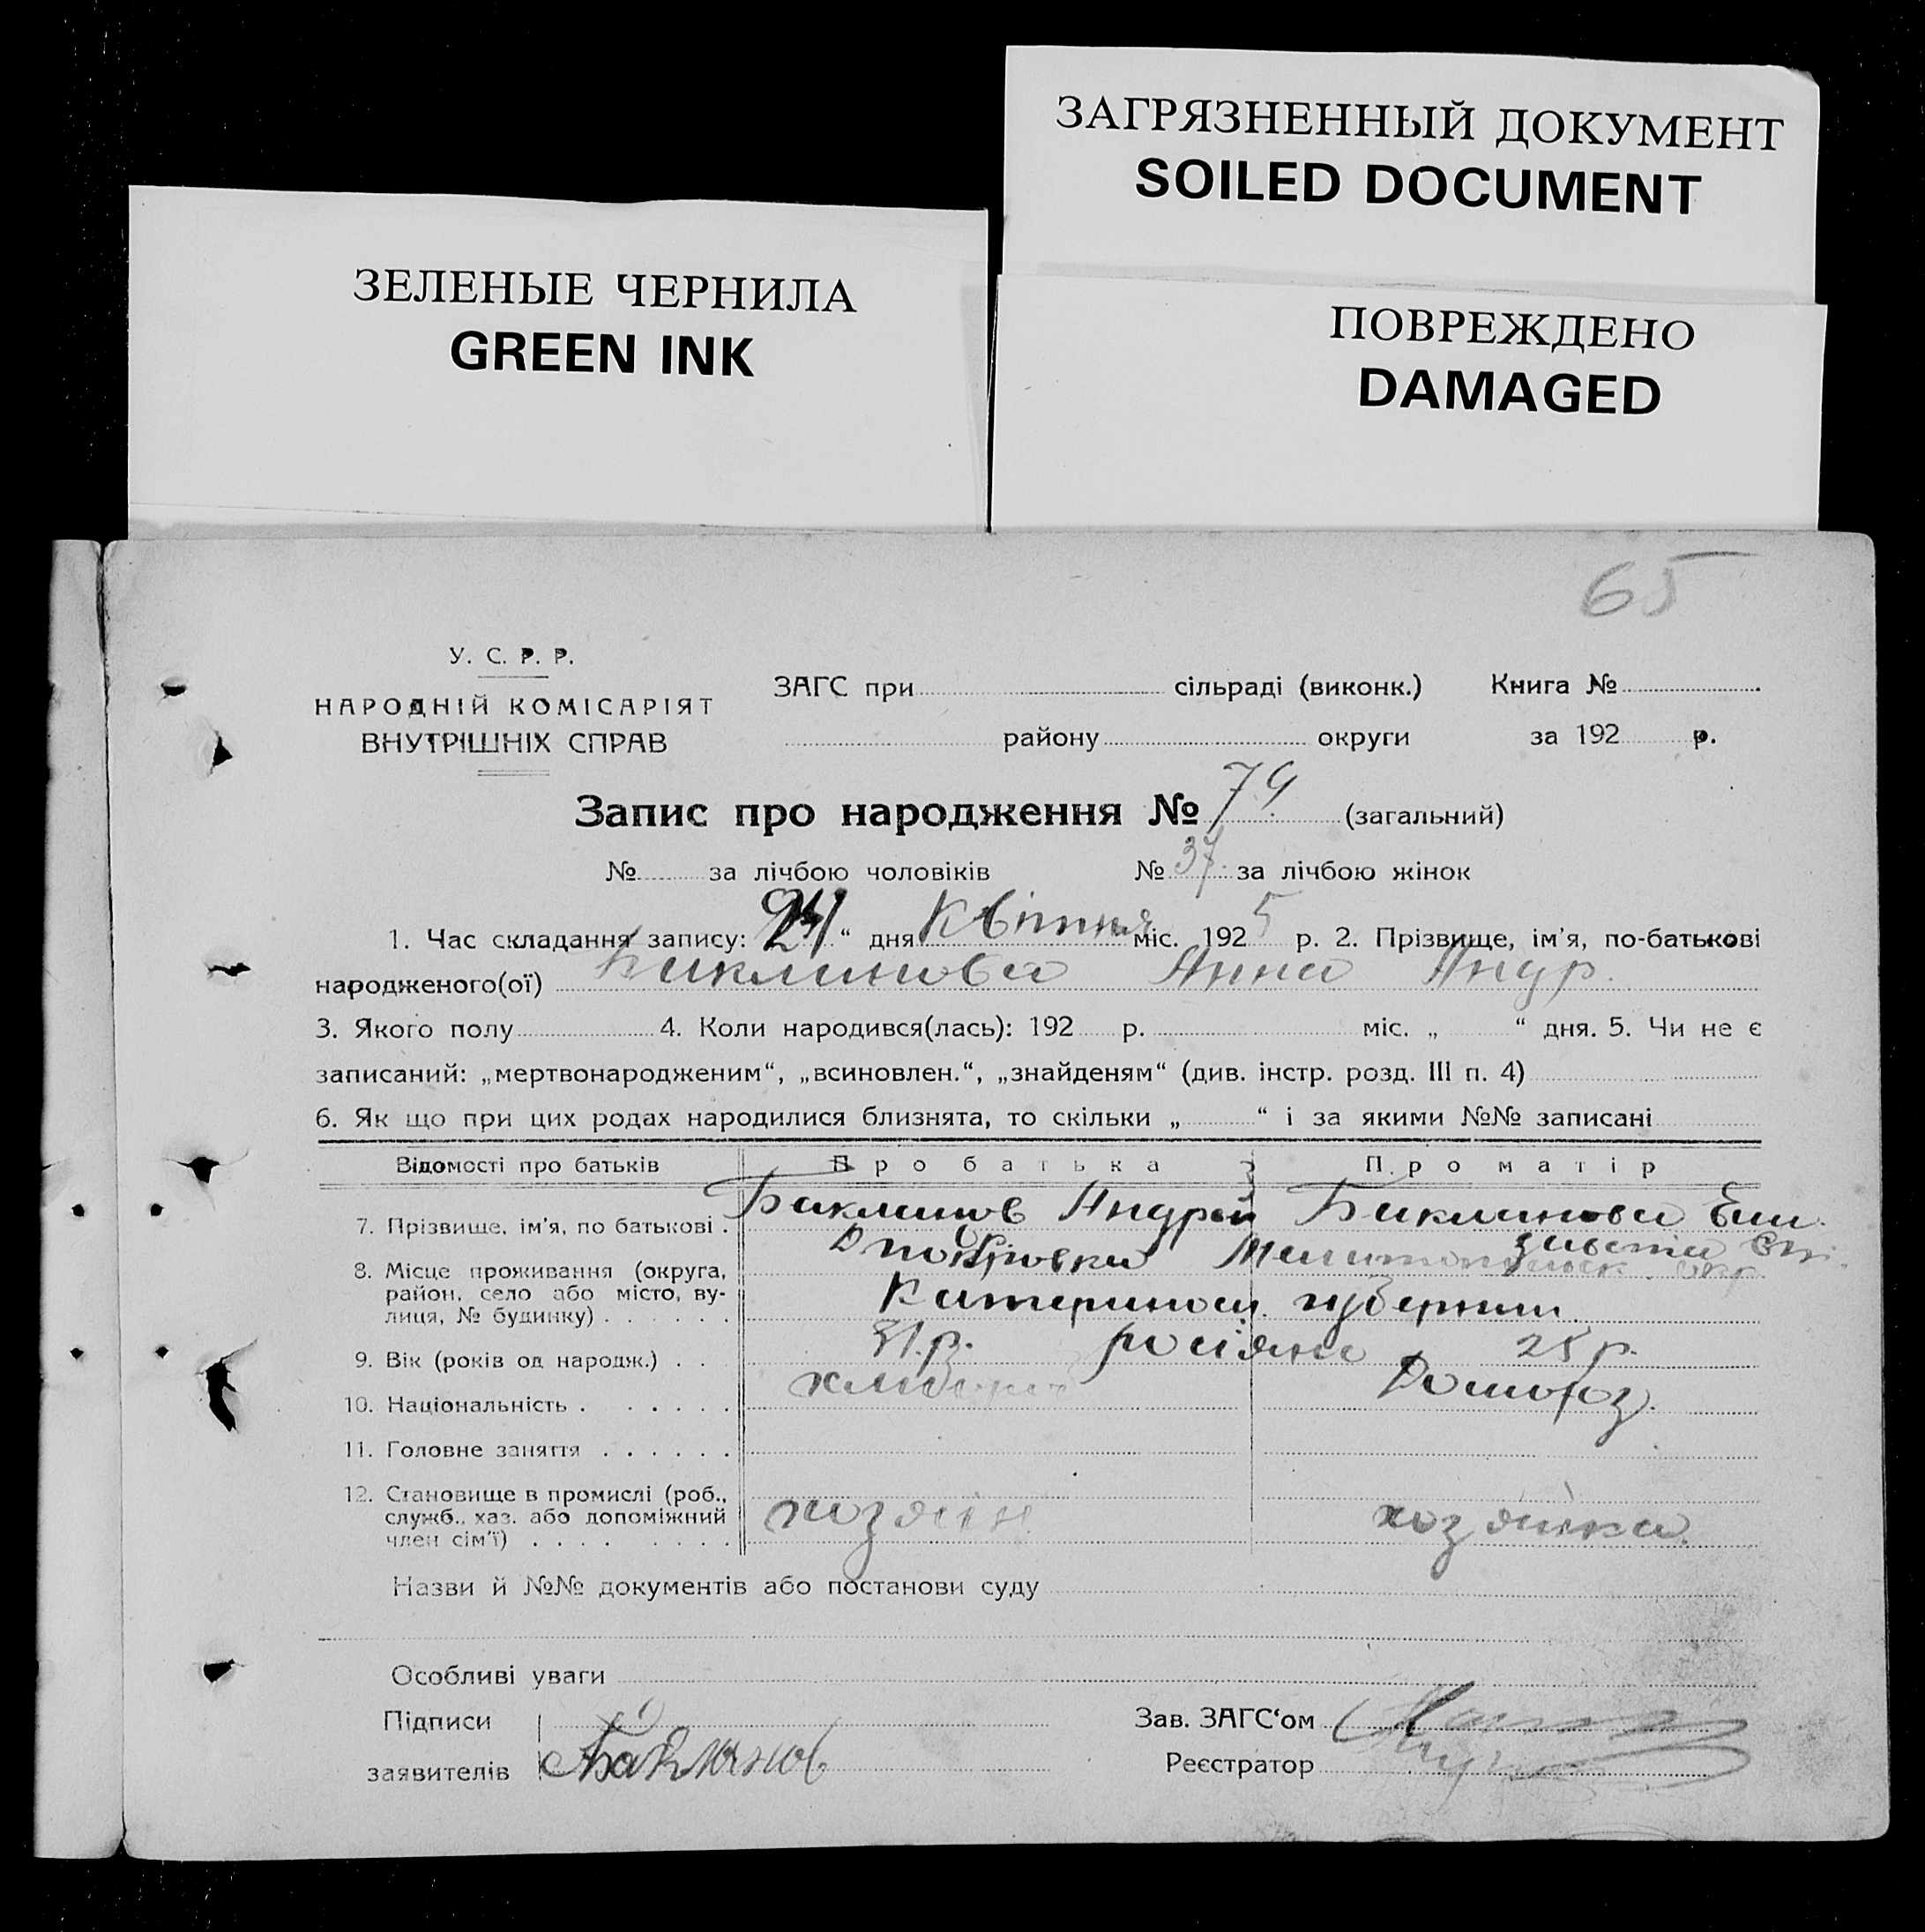 ЗАГРЯЗНЕННЫЙ ДОКУМЕНТ
SOILED DOCUMENT
ЗЕЛЕНЫЕ ЧЕРНИЛА
GREEN INK
ПОВРЕЖДЕНО
DAMAGED
65
У. С. Р. Р.
НАРОДНІЙ КОМІСАРІЯТ
ВНУТРІШНІХ СПРАВ
ЗАГС при сільраді (виконк.) Книга №
району округи за 192 р.
Запис про народження № 79 (загальний)
№ за лічбою чоловіків № 37 за лічбою жінок
1. Час складання запису: “ дня Квітня міс. 1925 р. 2. Прізвище, ім'я, по-батькові
народженого(ої) Бакланова Анна Андр.
3. Якого полу 4. Коли народився(лась): 192 р. міс. „ “ дня. 5. Чи не є
записаний: „мертвонародженим“, „всиновлен.“, „знайденям“ (див. інстр. розд. III п. 4)
6. Як що при цих родах народилися близнята, то скільки „ “ і за якими №№ записані
Відомості про батьків Про батька Про матір
7. Прізвище, ім'я, по батькові . Бакланов Андрей Бакланова Ели
завета
8. Місце проживання (округа, район, село або місто, ву-
лиця, № будинку) . . . . . . Покровка Мелитопольск. окр.
Катеринос. губернии.
9. Вік (років од народж.) . . 31.р. росіяне 25 р.
10. Національність . . . . . . хлібороб Домогоз.
11. Головне заняття . . . . . .
12. Становище в промислі (роб.,
служб., хаз. або допоміжний
член сім'ї) . . . . . . . . хозяїн хозяйка
Назви й №№ документів або постанови суду
Особливі уваги
Підписи Зав. ЗАГС‘ом
заявителів Бакланов Реєстратор